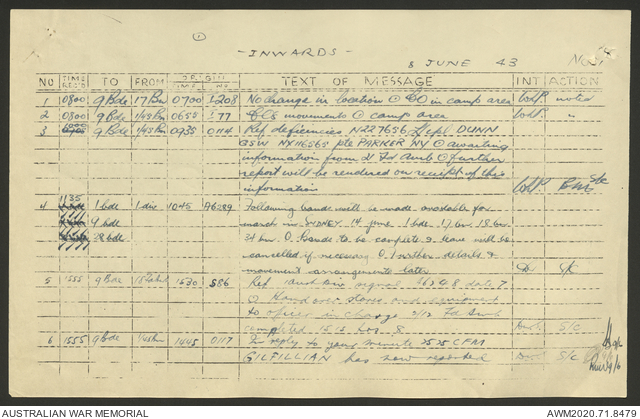 ①
- INWARDS -
8 JUNE 43
No
NO TIME REC'D TO FROM ORIGIN TEXT OF MESSAGE INT ACTION
1 0800 9 Bde 17 Bn 0700 I208 No change in location ⊙ CO in camp area noted
2 0800 9 Bde 1/45 Bn 0655 I77 COs movements ⊙ camp area "
3 9 Bde 1/45 Bn 0935 0114 Ref deficiencies N227656 L/cpl DUNN
GSW NX116565 pte PARKER NY ⊙ awaiting
information from Fd Amb ⊙ further
report will be rendered on receipt of this
information
1135
4 1 bde 1 div 1045 A6289 Following bands will be made available for
9 bde march in SYDNEY 14 june 1 bde 17 bn 18 bn
28 bde bn ⊙ bands to be complete & leave will be
cancelled if necessary ⊙ further details &
movement arrangements later S/c
5 1555 9 Bde 1530 S86 Ref signal date 7
⊙ Hand over stores and equipment
to officer in charge Fd Amb
completed hrs 8 S/c
6 1555 9 bde 1/45 Bn 1445 0117 In reply to your minute 2525 CFM
GILFILLIAN has now reported S/c
AUSTRALIAN WAR MEMORIAL
AWM2020.71.8479